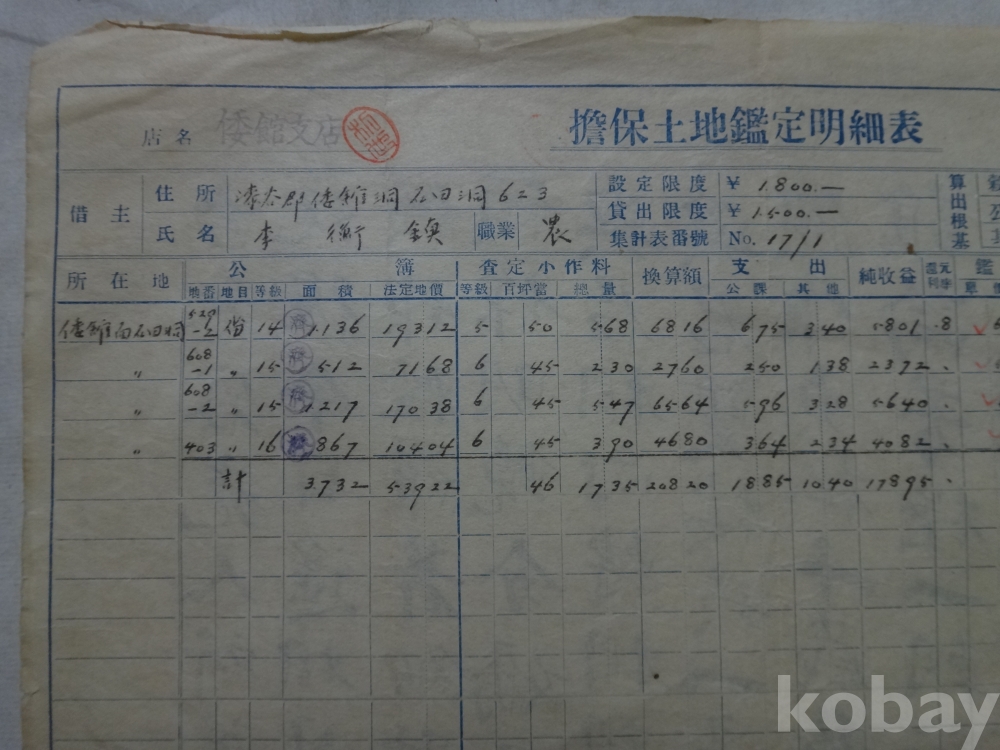 店名 倭館支店 擔保土地鑑定明細表
借主 住所 漆谷郡倭館洞石田洞623 設定限度 ¥ 1.800.—
貸出限度 ¥ 1.500.— 算出根基
氏名 李 鎮 職業 農 集計表番號 No. 17/1
所在地 公簿 査定小作料 換算額 支出 純收益 還元利率 鑑
地番 地目 等級 面積 法定地價 等級 百坪當 總量 公課 其他 單
倭館面石田洞 529-2 畓 14 1.136 19312 5 50 568 6816 675 340 5801 .8
〃 608-1 〃 15 512 7168 6 45 230 2760 250 138 2372 .
〃 608-2 〃 15 1.217 17038 6 45 547 6564 596 328 5640 .
〃 403 〃 16 867 10404 6 45 390 4680 364 234 4082 .
計 3.732 53922 46 1735 20820 1885 1040 17895 .
kobay